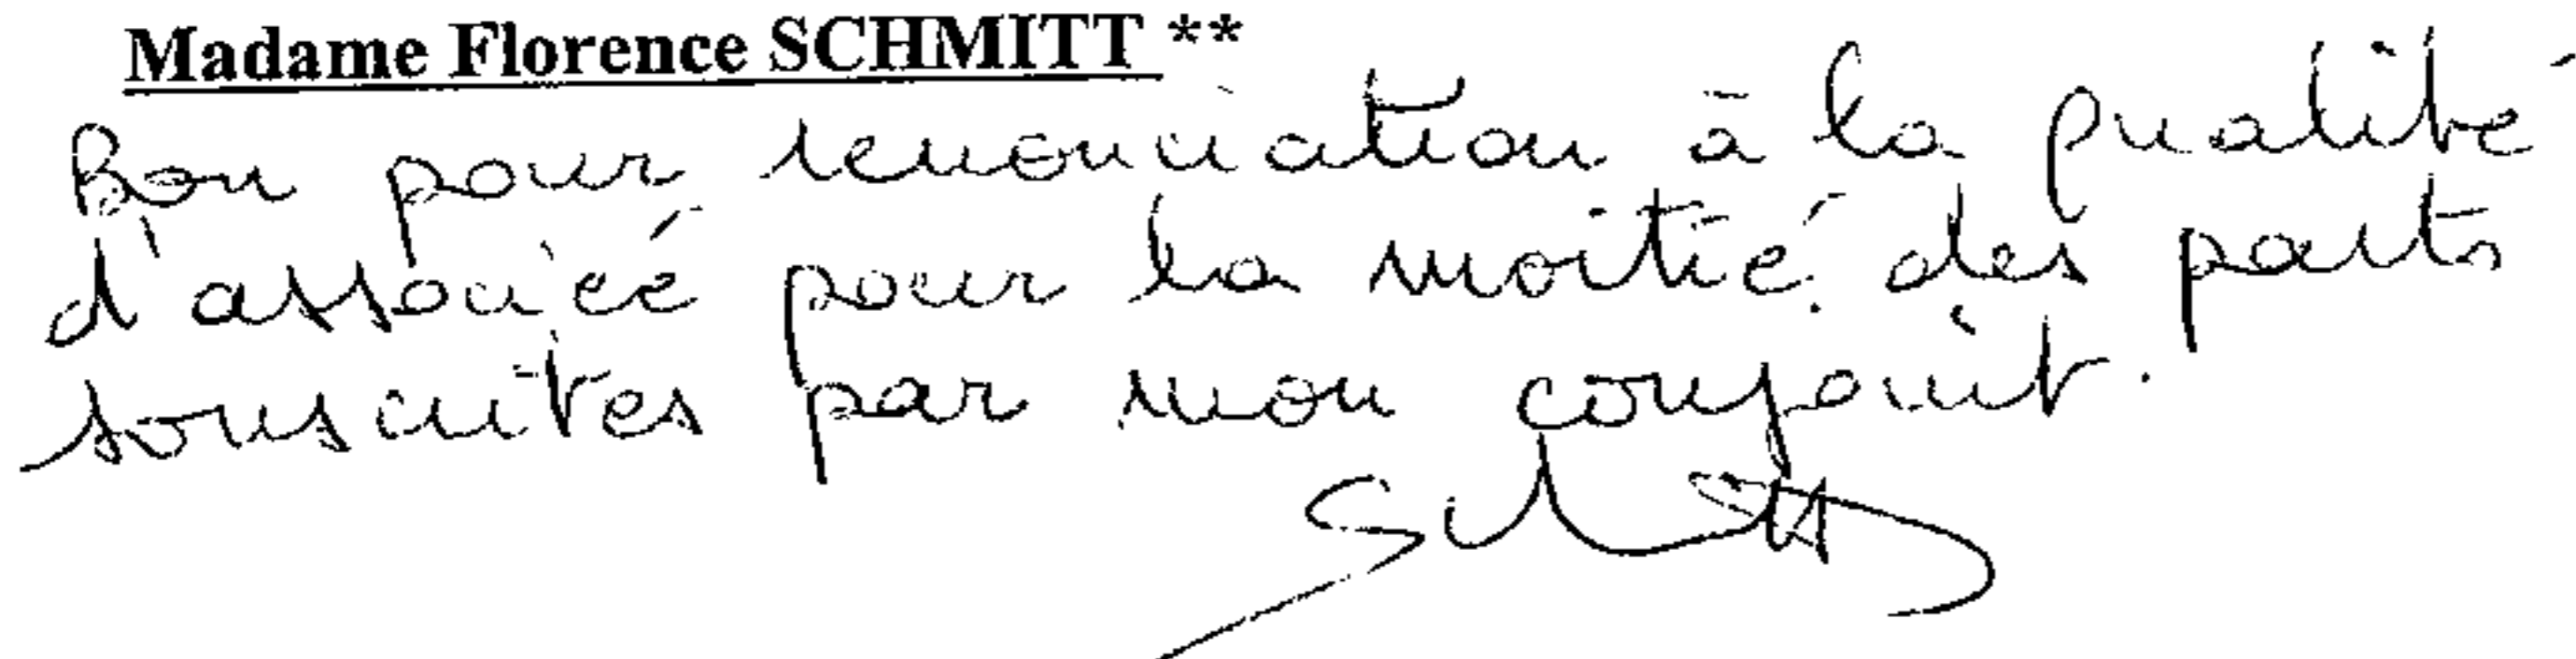 Madame Florence SCHMITT **
Bon pour renonciation à la qualité
d'associée pour la moitié des parts
souscrites par mon conjoint.